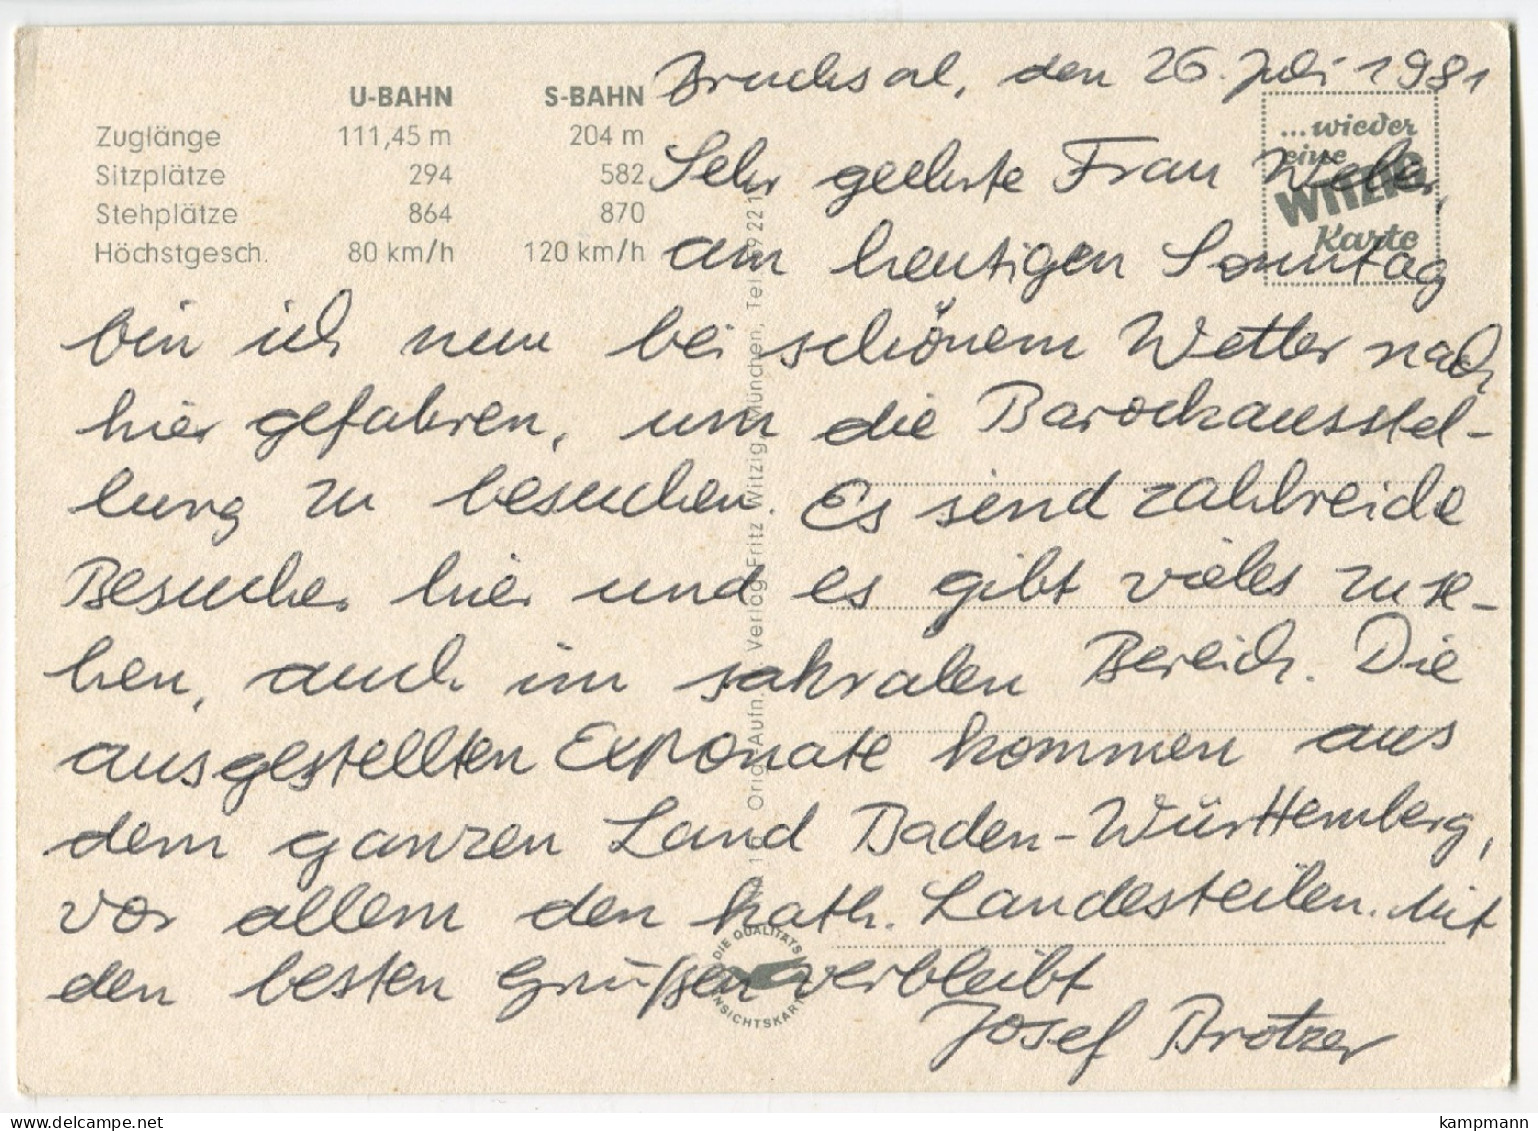 Bruchsal, den 26. Juli 1981
U-BAHN S-BAHN
Zuglänge 111,45 m 204 m
Sitzplätze 294 582
Stehplätze 864 870
Höchstgesch. 80 km/h 120 km/h
...wieder
eine
WITZIG
Karte
Sehr geehrte Frau Weber,
am heutigen Sonntag
bin ich nun bei schönem Wetter nach
hier gefahren, um die Barockausstel-
lung zu besuchen. Es sind zahlreiche
Besucher hier und es gibt vieles zu se-
hen, auch im sakralen Bereich. Die
ausgestellten Exponate kommen aus
dem ganzen Land Baden-Württemberg,
vor allem den kath. Landesteilen. Mit
den besten Grüßen verbleibt
Josef Brotzer
Verlag Fritz Witzig, München, Tel.
DIE QUALITÄTS
ANSICHTSKARTE
www.delcampe.net
kampmann